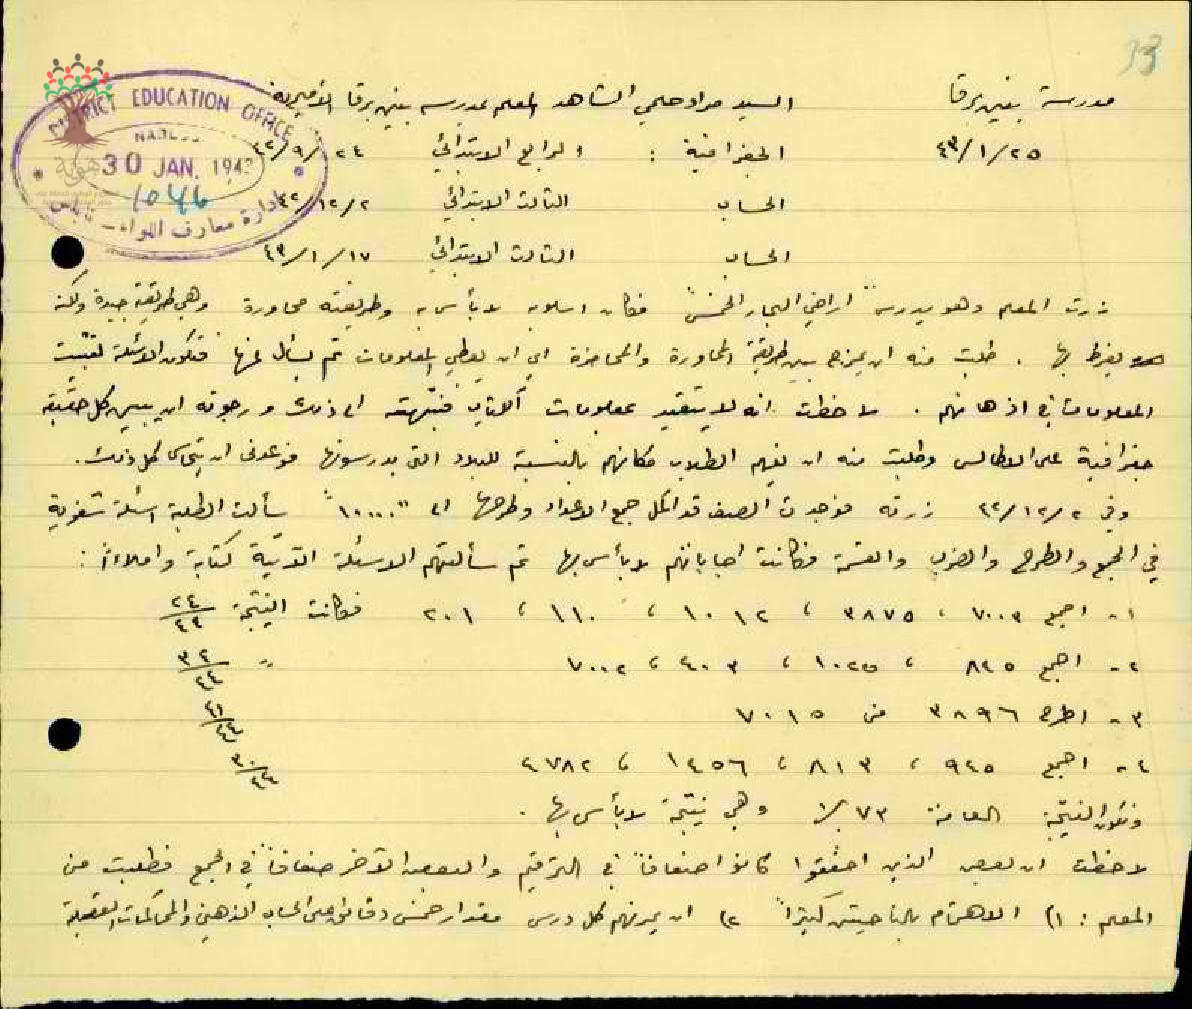 33
مدرسة بيت برقا السيد مراد حلمي الشاهد المعلم بمدرسة بيت برقا الأميرية
٤٣/١/٢٥ الجغرافية : الرابع الابتدائي ٤٢/٩/٢٤
الحساب الثالث الابتدائي ٤٢/١٢/٢
الحساب الثالث الابتدائي ٤٣/١/١٧
DISTRICT EDUCATION OFFICE
NABLUS
30 JAN. 1943
1046
إدارة معارف اللواء - نابلس
زرت المعلم وهو يدرس "اراضي البحار الخمس" فكان اسلوبه لا بأس به وطريقته محاورة وهي طريقة جيدة ولكنه
يفرط بها . طلبت منه ان يمزج بين طريقة المحاورة والمحاضرة اي ان يعطي المعلومات ثم يسأل عنها فتكون الاسئلة لتثبيت
المعلومات في اذهانهم . لاحظت انه لا يتقيد بمعلومات الكتاب فنبهته الى ذلك ورجوته ان يبين كل حقيقة
جغرافية على الاطالس وطلبت منه ان يفهم الطلاب مكانهم بالنسبة للبلاد التي يدرسونها فوعدني ان يتحاشى كل ذلك .
وفي ٤٢/١٢/٢ زرته فوجدت الصف قد اكمل جمع الاعداد وطرحها الى "١٠٠٠٠" سألت الطلبة اسئلة شفوية
في الجمع والطرح والضرب والقسمة فكانت اجاباتهم لا بأس بها ثم سألتهم الاسئلة الآتية كتابة واملاءً :
١- اجمع ٧٠٠٣ ، ٣٨٧٥ ، ١٠١٢ ، ١١٠ ، ٢٠١ فكانت النتيجة ٢٤/٤٤
٢- اجمع ٨٤٥ ، ١٠٢٥ ، ٤٠٣ ، ٧٠٠٢ " ٣٤/٤٤
٣- اطرح ٣٨٩٦ من ٧٠١٥ ٤١/٤٤
٤- اجمع ٩٤٥ ، ٨١٣ ، ١٤٥٦ ، ٤٧٨٢ ٣٠/٤٤
وتكون النتيجة العامة ٧٣٪ وهي نتيجة لا بأس بها .
لاحظت ان بعض الذين اخفقوا كانوا ضعافاً في الترقيم والبعض الآخر ضعافاً في الجمع فطلبت من
المعلم : ١) الاهتمام بالناحيتين كثيراً ٢) ان يمرنهم كل درس مقدار خمس دقائق على الحساب الذهني والمحاكمات العقلية